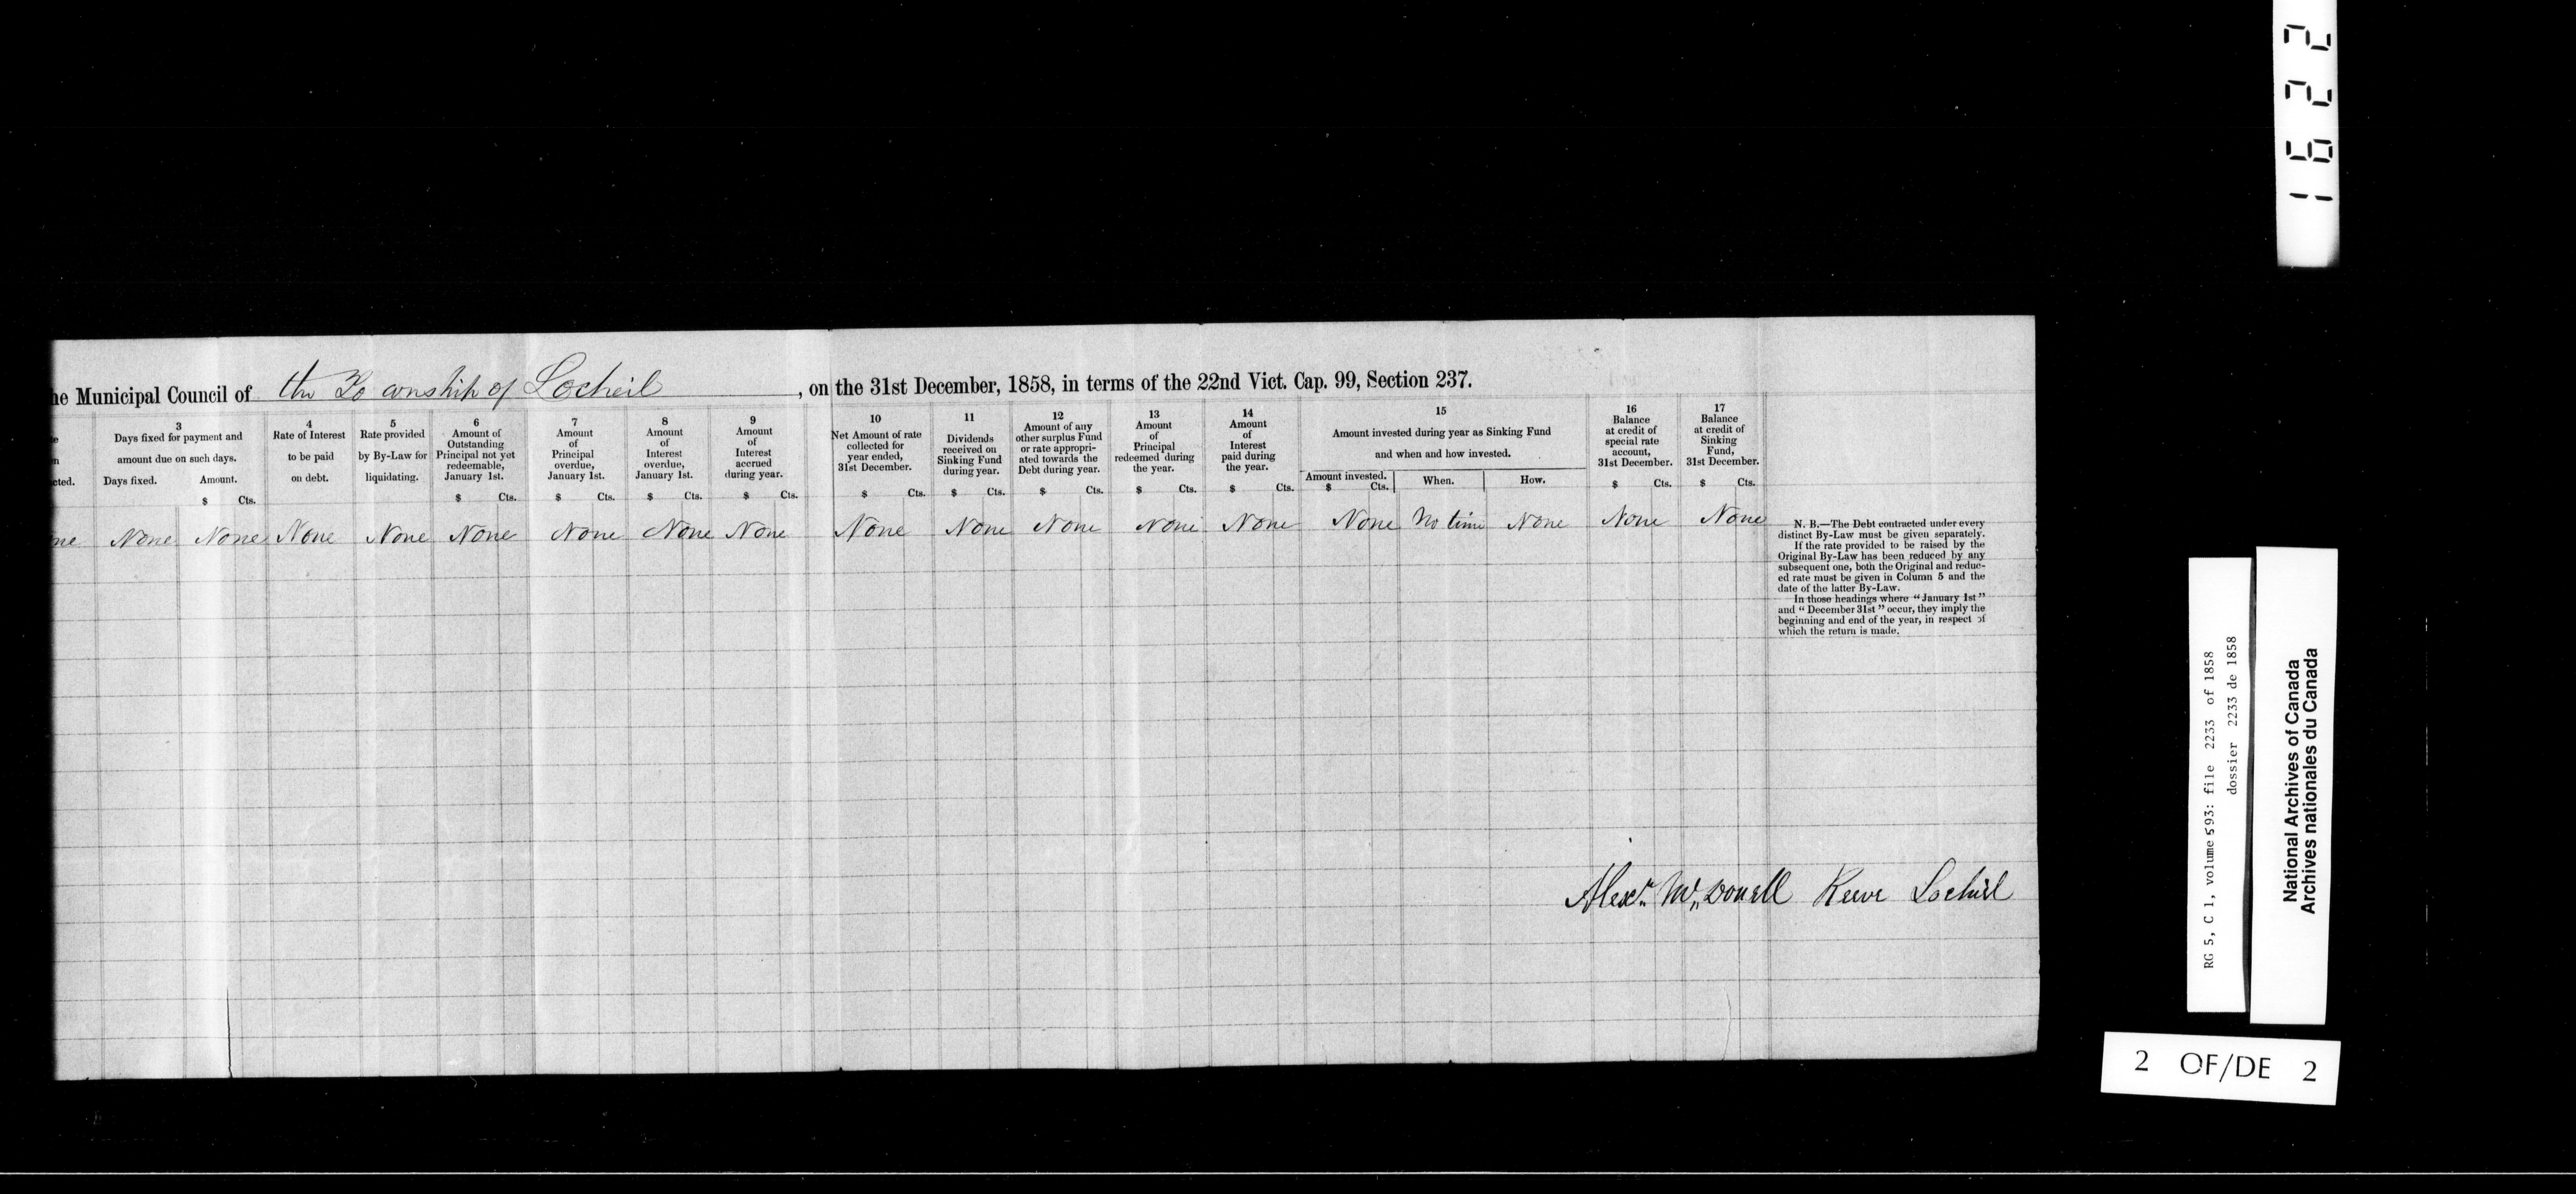 he Municipal Council of the Township of Locheil, on the 31st December, 1858, in terms of the 22nd Vict. Cap. 99, Section 237.
cted.
3
Days fixed for payment and
amount due on such days.
Days fixed. Amount.
$ Cts.
4
Rate of Interest
to be paid
on debt.
5
Rate provided
by By-Law for
liquidating.
6
Amount of
Outstanding
Principal not yet
redeemable,
January 1st.
$ Cts.
7
Amount
of
Principal
overdue,
January 1st.
$ Cts.
8
Amount
of
Interest
overdue,
January 1st.
$ Cts.
9
Amount
of
Interest
accrued
during year.
$ Cts.
10
Net Amount of rate
collected for
year ended,
31st December.
$ Cts.
11
Dividends
received on
Sinking Fund
during year.
$ Cts.
12
Amount of any
other surplus Fund
or rate appropri-
ated towards the
Debt during year.
$ Cts.
13
Amount
of
Principal
redeemed during
the year.
$ Cts.
14
Amount
of
Interest
paid during
the year.
$ Cts.
15
Amount invested during year as Sinking Fund
and when and how invested.
Amount invested. When. How.
$ Cts.
16
Balance
at credit of
special rate
account,
31st December.
$ Cts.
17
Balance
at credit of
Sinking
Fund,
31st December.
$ Cts.
ne None None None None None None None None None None None None None None No time None None None
N. B.—The Debt contracted under every
distinct By-Law must be given separately.
If the rate provided to be raised by the
Original By-Law has been reduced by any
subsequent one, both the Original and reduc-
ed rate must be given in Column 5 and the
date of the latter By-Law.
In those headings where “January 1st”
and “December 31st” occur, they imply the
beginning and end of the year, in respect of
which the return is made.
Alexr. Mc Donell Reeve Lochiel
1622
RG 5, C 1, volume 593: file 2233 of 1858
dossier 2233 de 1858
National Archives of Canada
Archives nationales du Canada
2 OF/DE 2